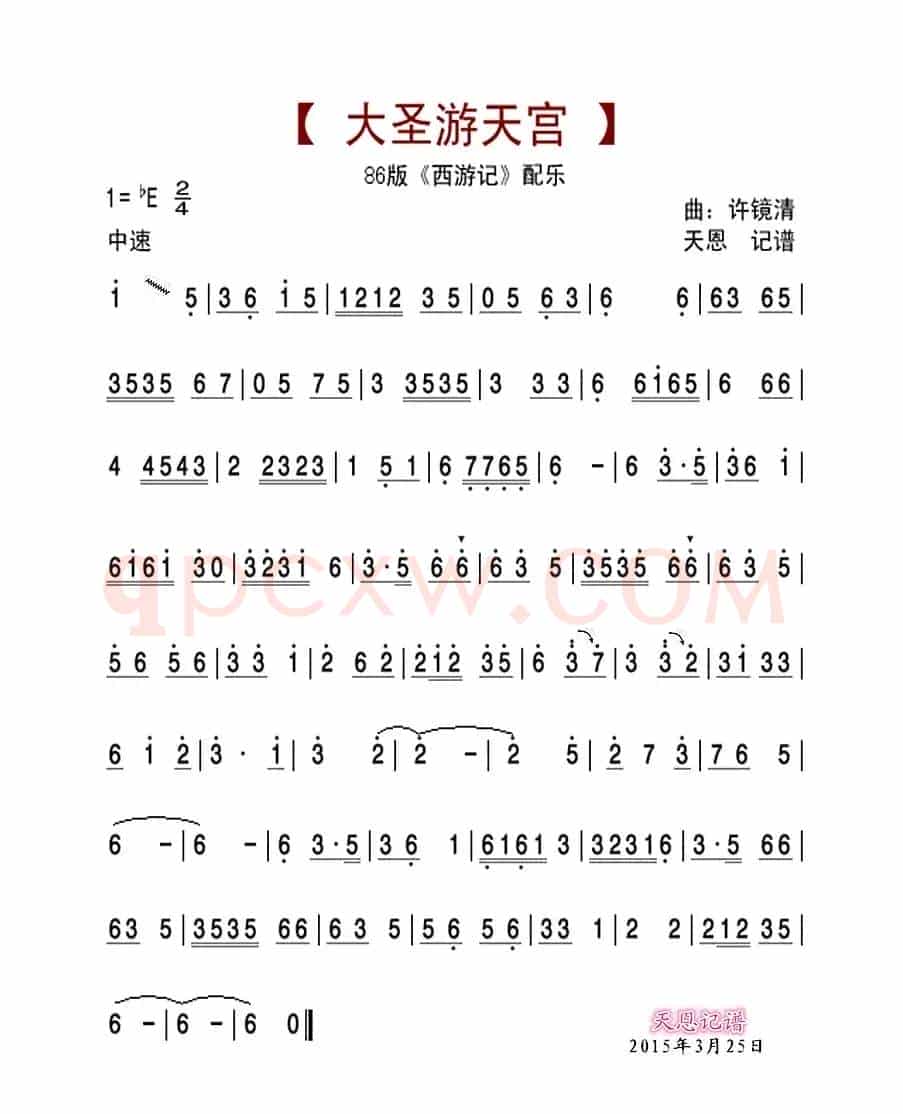 【 大圣游天宫 】
86版《西游记》配乐
1= ♭E 2/4
曲：许镜清
中速
天恩 记谱
i 5̣ | 3 6̣ i 5 | 1212 3 5 | 0 5 6̣ 3 | 6̣ 6̣ | 63 65 |
3535 6 7 | 0 5 7 5 | 3 3535 | 3 3 3 | 6̣ 6i65 | 6 66 |
4 4543 | 2 2323 | 1 5̣ 1 | 6̣ 7̣7̣6̣5̣ | 6̣ – | 6 3̇·5̇ | 3̇6 i |
6i6i 3̇0 | 3̇2̇3̇i 6 | 3̇·5̇ 6̇6̇ | 6̇3̇ 5̇ | 3̇5̇3̇5̇ 6̇6̇ | 6̇3̇ 5̇ |
5̇6 5̇6 | 3̇3̇ i | 2̇ 6 2̇ | 2̇i2̇ 3̇5̇ | 6̇ 3̇ 7̇ | 3̇ 3̇ 2̇ | 3̇i 3̇3̇ |
6 i 2̇ | 3̇· i | 3̇ 2̇ | 2̇ – | 2̇ 5̇ | 2̇ 7 3̇ | 76 5 |
6 – | 6 – | 6̣ 3·5 | 36̣ 1 | 6̣16̣1 3 | 32316̣ | 3·5 66 |
63 5 | 3535 66 | 63 5 | 56̣ 56̣ | 33 1 | 2 2 | 212 35 |
6 – | 6 – | 6 0 ‖
qpcxw.COM
天恩记谱
2015年3月25日